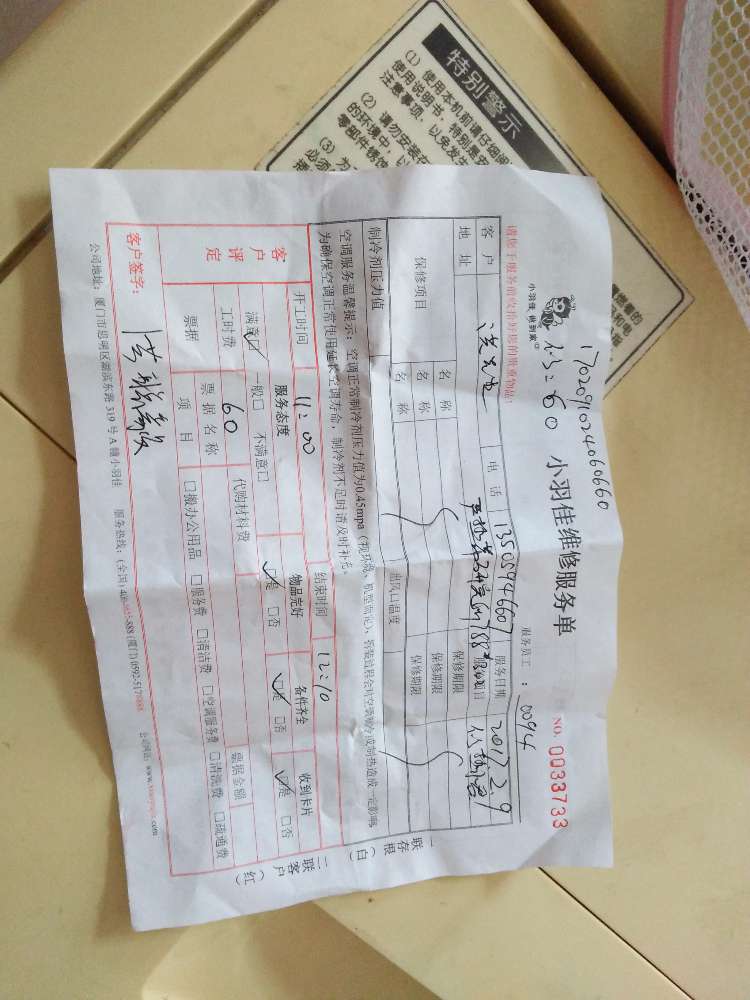 特别警示
(1) 使用本机前请仔细阅
使用说明书，特别是安
注意事项，以免发生
(2) 请勿安装在
的环境中，以
零部件锈蚀
(3) 为
必须
170209102406066​0
60
小羽佳维修服务单
小羽佳 做到家
服务员工：0094
NO. 0033733
请您于服务前收拾好您的贵重物品：
客户 洪先生 电话 13505946607 服务日期 2017.2.9
地址 788 服务项目
保修项目 名称 保修期限
名称 保修期限
名称 保修期限
制冷剂压力值 出风口温度
空调服务温馨提示：空调正常制冷剂压力值为0.45mpa（视环境、机型而定），拆装过程会将空调制冷或制热造成一定影响
为确保空调正常使用延长空调寿命，制冷剂不足时请及时补充。
客户评定
开工时间 11:00 结束时间 12:10
服务态度 物品完好 备件齐全 收到卡片
满意☑ 一般□ 不满意□ ☑是 □否 ☑是 □否 ☑是 □否
工时费 60 代购材料费
票据 票据名称 票据金额
项目 □搬办公用品 □服务费 □清洁费 □空调服务费 □清洗费 □疏通费
客户签字：
公司地址：厦门市思明区湖滨东路319号A幢小羽佳 服务热线：(全国)
一联存根（白）
二联客户（红）